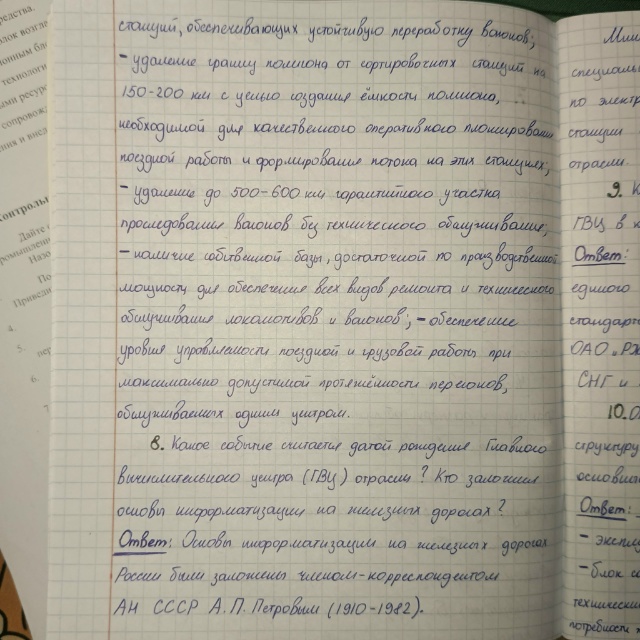 станций, обеспечивающих устойчивую переработку вагонов;
- удаление границ полигона от сортировочных станций на
150-200 км с целью создания ёмкости полигона,
необходимой для качественного оперативного планирования
поездной работы и формирования потока на этих станциях;
- удаление до 500-600 км гарантийного участка
проследования вагонов без технического обслуживания;
- наличие собственной базы, достаточной по производственной
мощности для обеспечения всех видов ремонта и технического
обслуживания локомотивов и вагонов; - обеспечение
уровня управляемости поездной и грузовой работы при
максимально допустимой протяжённости перегонов,
обслуживаемых одним центром.
8. Какое событие считается датой рождения Главного
вычислительного центра (ГВЦ) отрасли? Кто заложил
основы информатизации на железных дорогах?
Ответ: Основы информатизации на железных дорогах
России были заложены членом-корреспондентом
АН СССР А.П. Петровым (1910-1982).
специаль
по электр
станции
отрасли.
9. К
ГВЦ в к
Ответ:
единого
стандарт
ОАО „РЖ
СНГ и
10. О
структуру
основны
Ответ:
- эксплу
- блок со
технически
потребности
редства.
технологи
сопровож
Контроль
Дайте
Назо
По
Приведи
4.
5. пер
6.